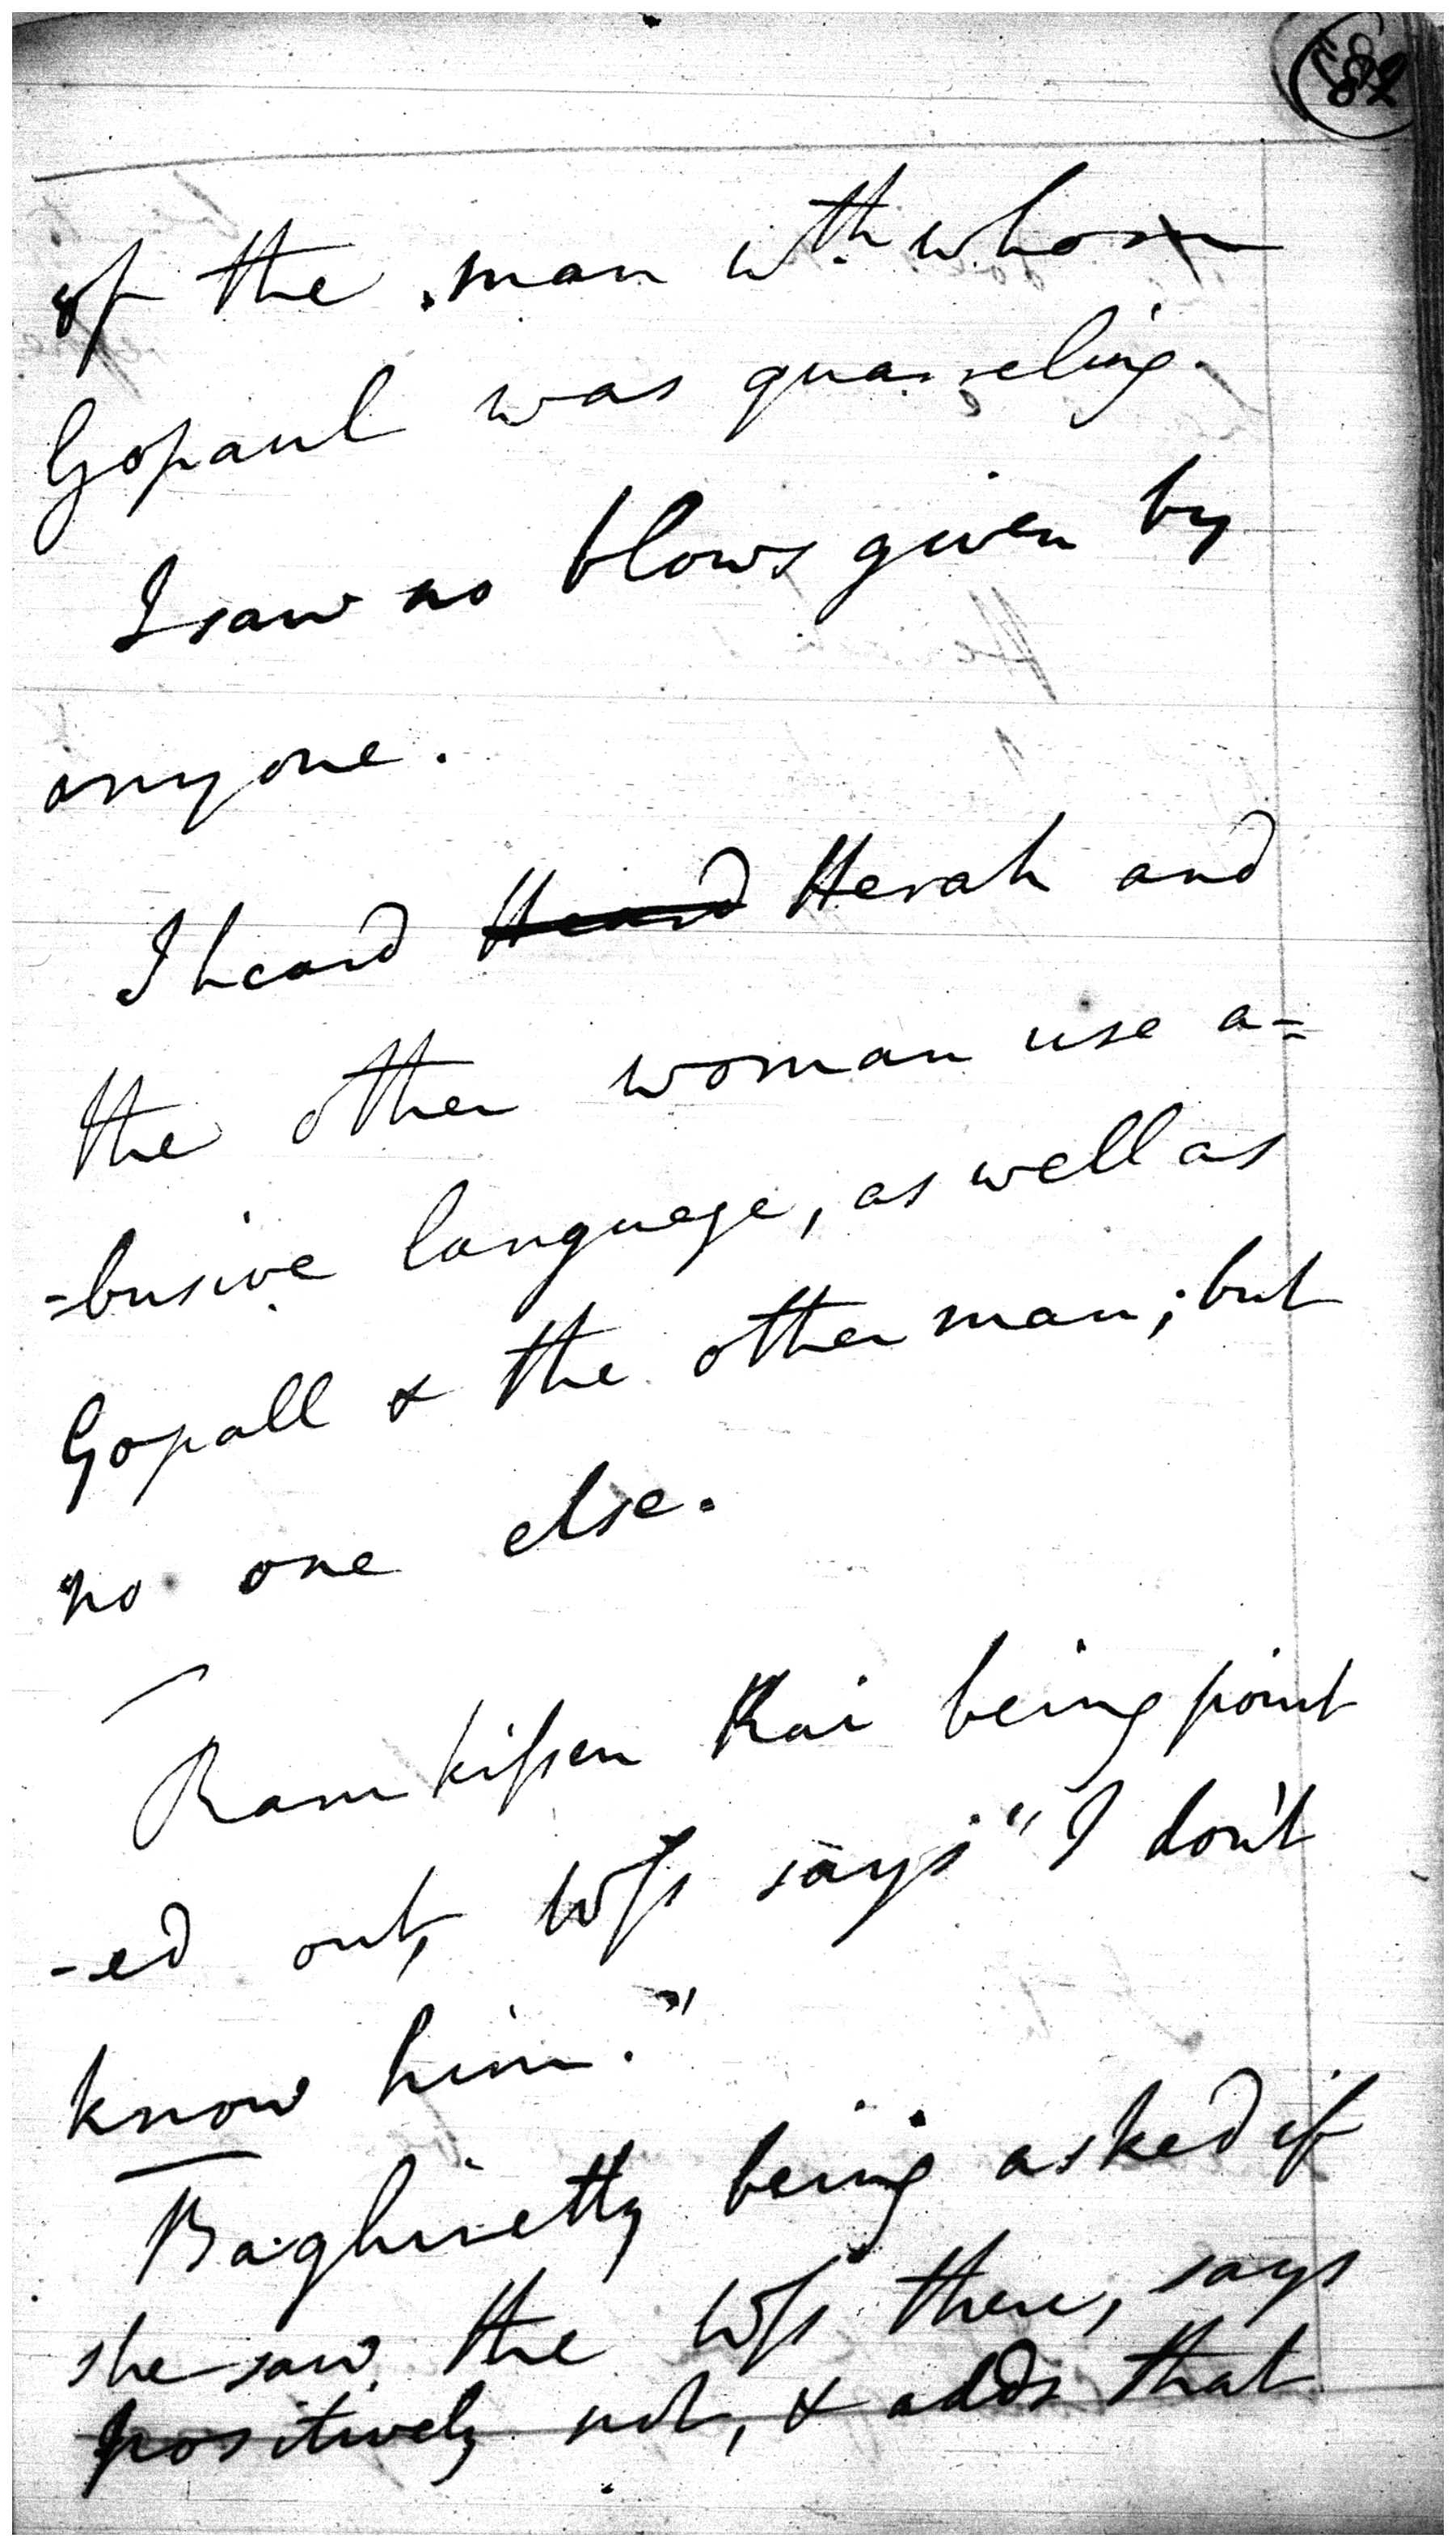 82
of the man wth. whom
Gopaul was quarreling.
I saw no blows given by
anyone.
I heard Heard Herah and
the other woman use a=
=busive language, as well as
Gopall & the other man; but
no one else.
Ramkissen Rai being point
-ed out, Wss says "I don't
know him."
Baghiretty being asked if
she saw the Wss there, says
positively not, & adds that